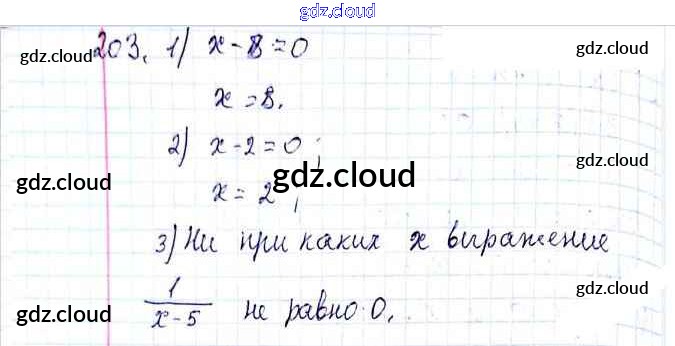 gdz.cloud
203. 1) x - 8 = 0
gdz.cloud
gdz.cloud
x = 8.
2) x - 2 = 0;
gdz.cloud
x = 2;
gdz.cloud
gdz.cloud
3) Ни при каких x выражение
1/(x - 5) не равно 0.
gdz.cloud
gdz.cloud